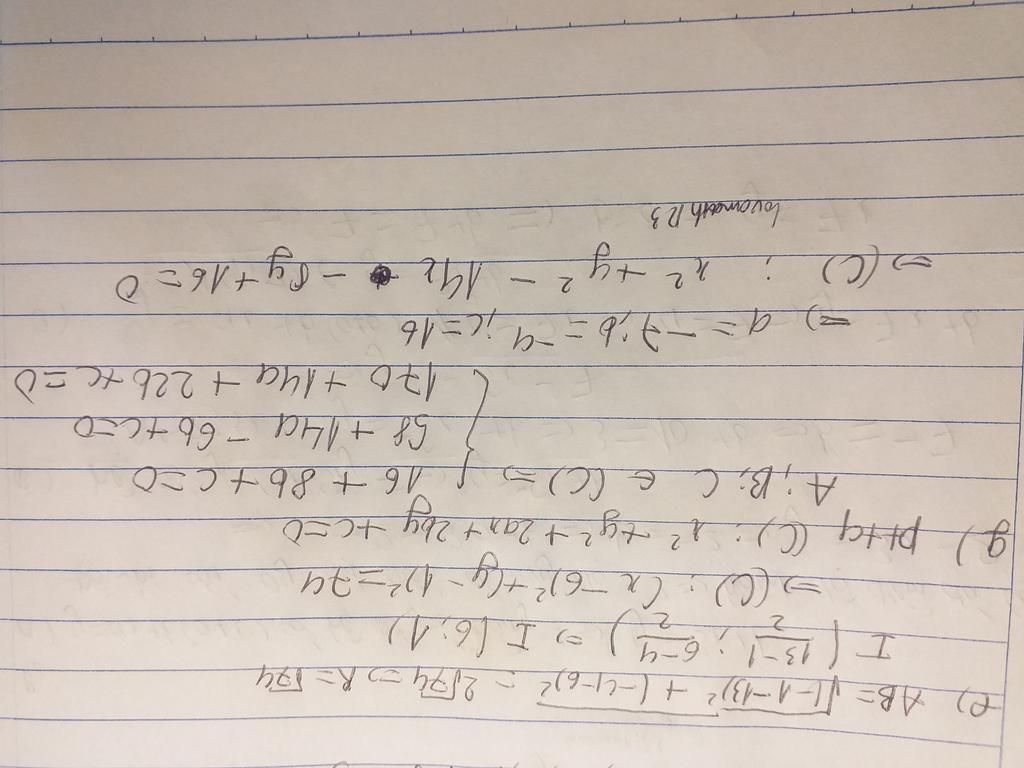 e) AB = √(-1-13)² + (-4-6)² = 2√74 => R = √74
I (13-1/2 ; 6-4/2) => I (6;1)
=> (C) : (x-6)² + (y-1)² = 74
g) pttq (C) : x² + y² + 2ax + 2by + c = 0
A; B; C ∈ (C) => { 16 + 8b + c = 0
58 + 14a - 6b + c = 0
170 + 14a + 22b + c = 0
=> a = -7; b = -4; c = 16
=> (C) : x² + y² - 14x - 8y + 16 = 0
lovamath123